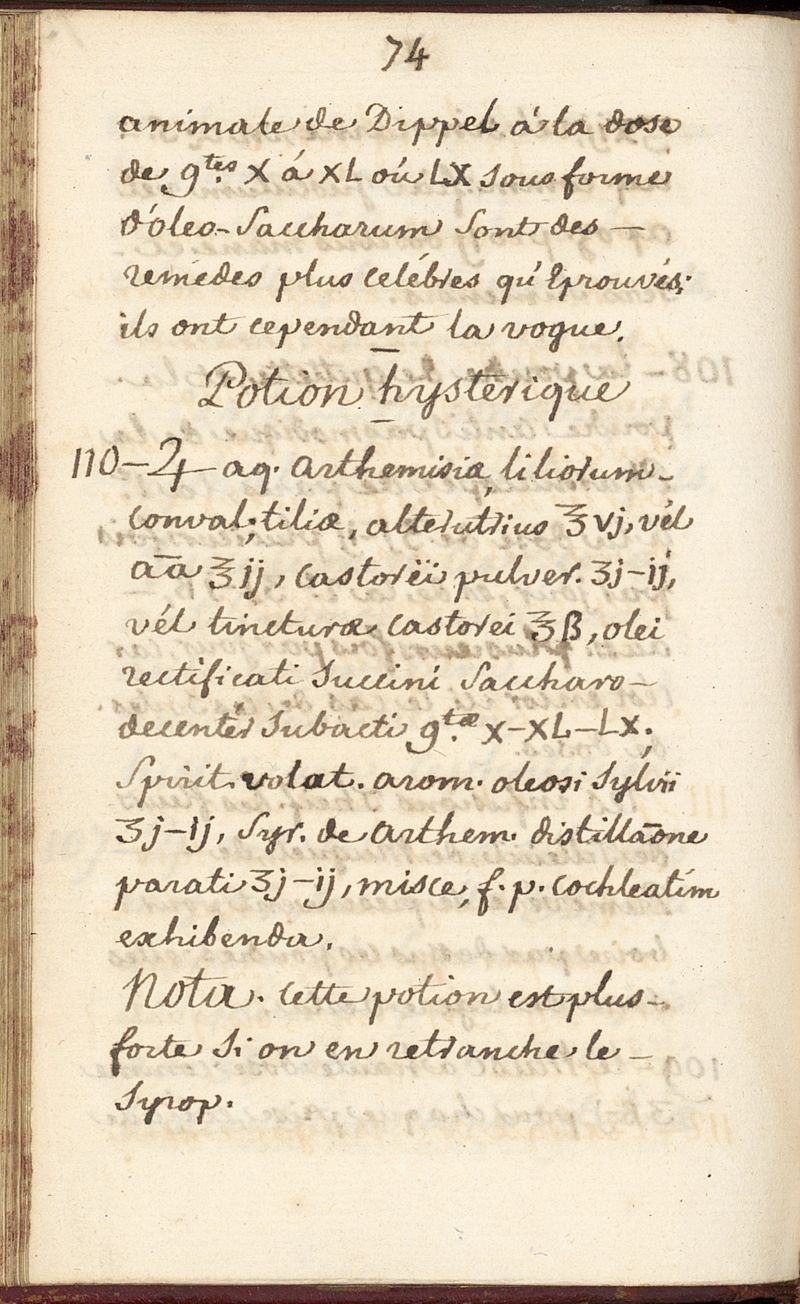 74
animale de Dippel á la dose
de g.tes X á XL oú LX sous forme
d'óleo-Saccharum sont des —
remédes plus celébres qu'Eprouvés;
ils ont cependant la vogue.
Potion hystérique
110 — ♃ aq. arthemisiæ, liliorum-
conval; tiliæ, alterutrius ℥vj, vél
āā ℥ij, castoreï pulver. ʒj-ij,
vél tincturæ castorei ℥ß, olei
rectificati Succini Saccharo —
decentér subacti g.tæ X-XL-LX.
Spirit. volat. arom. oleosi Sylvii
ʒj-ij, Syr. de arthem. distillāone
parati ʒj-ij, misce, f. p. cochleatím
exhibenda.
Nota. cette potion est plus-
forte si on en retranche le —
Syrop.